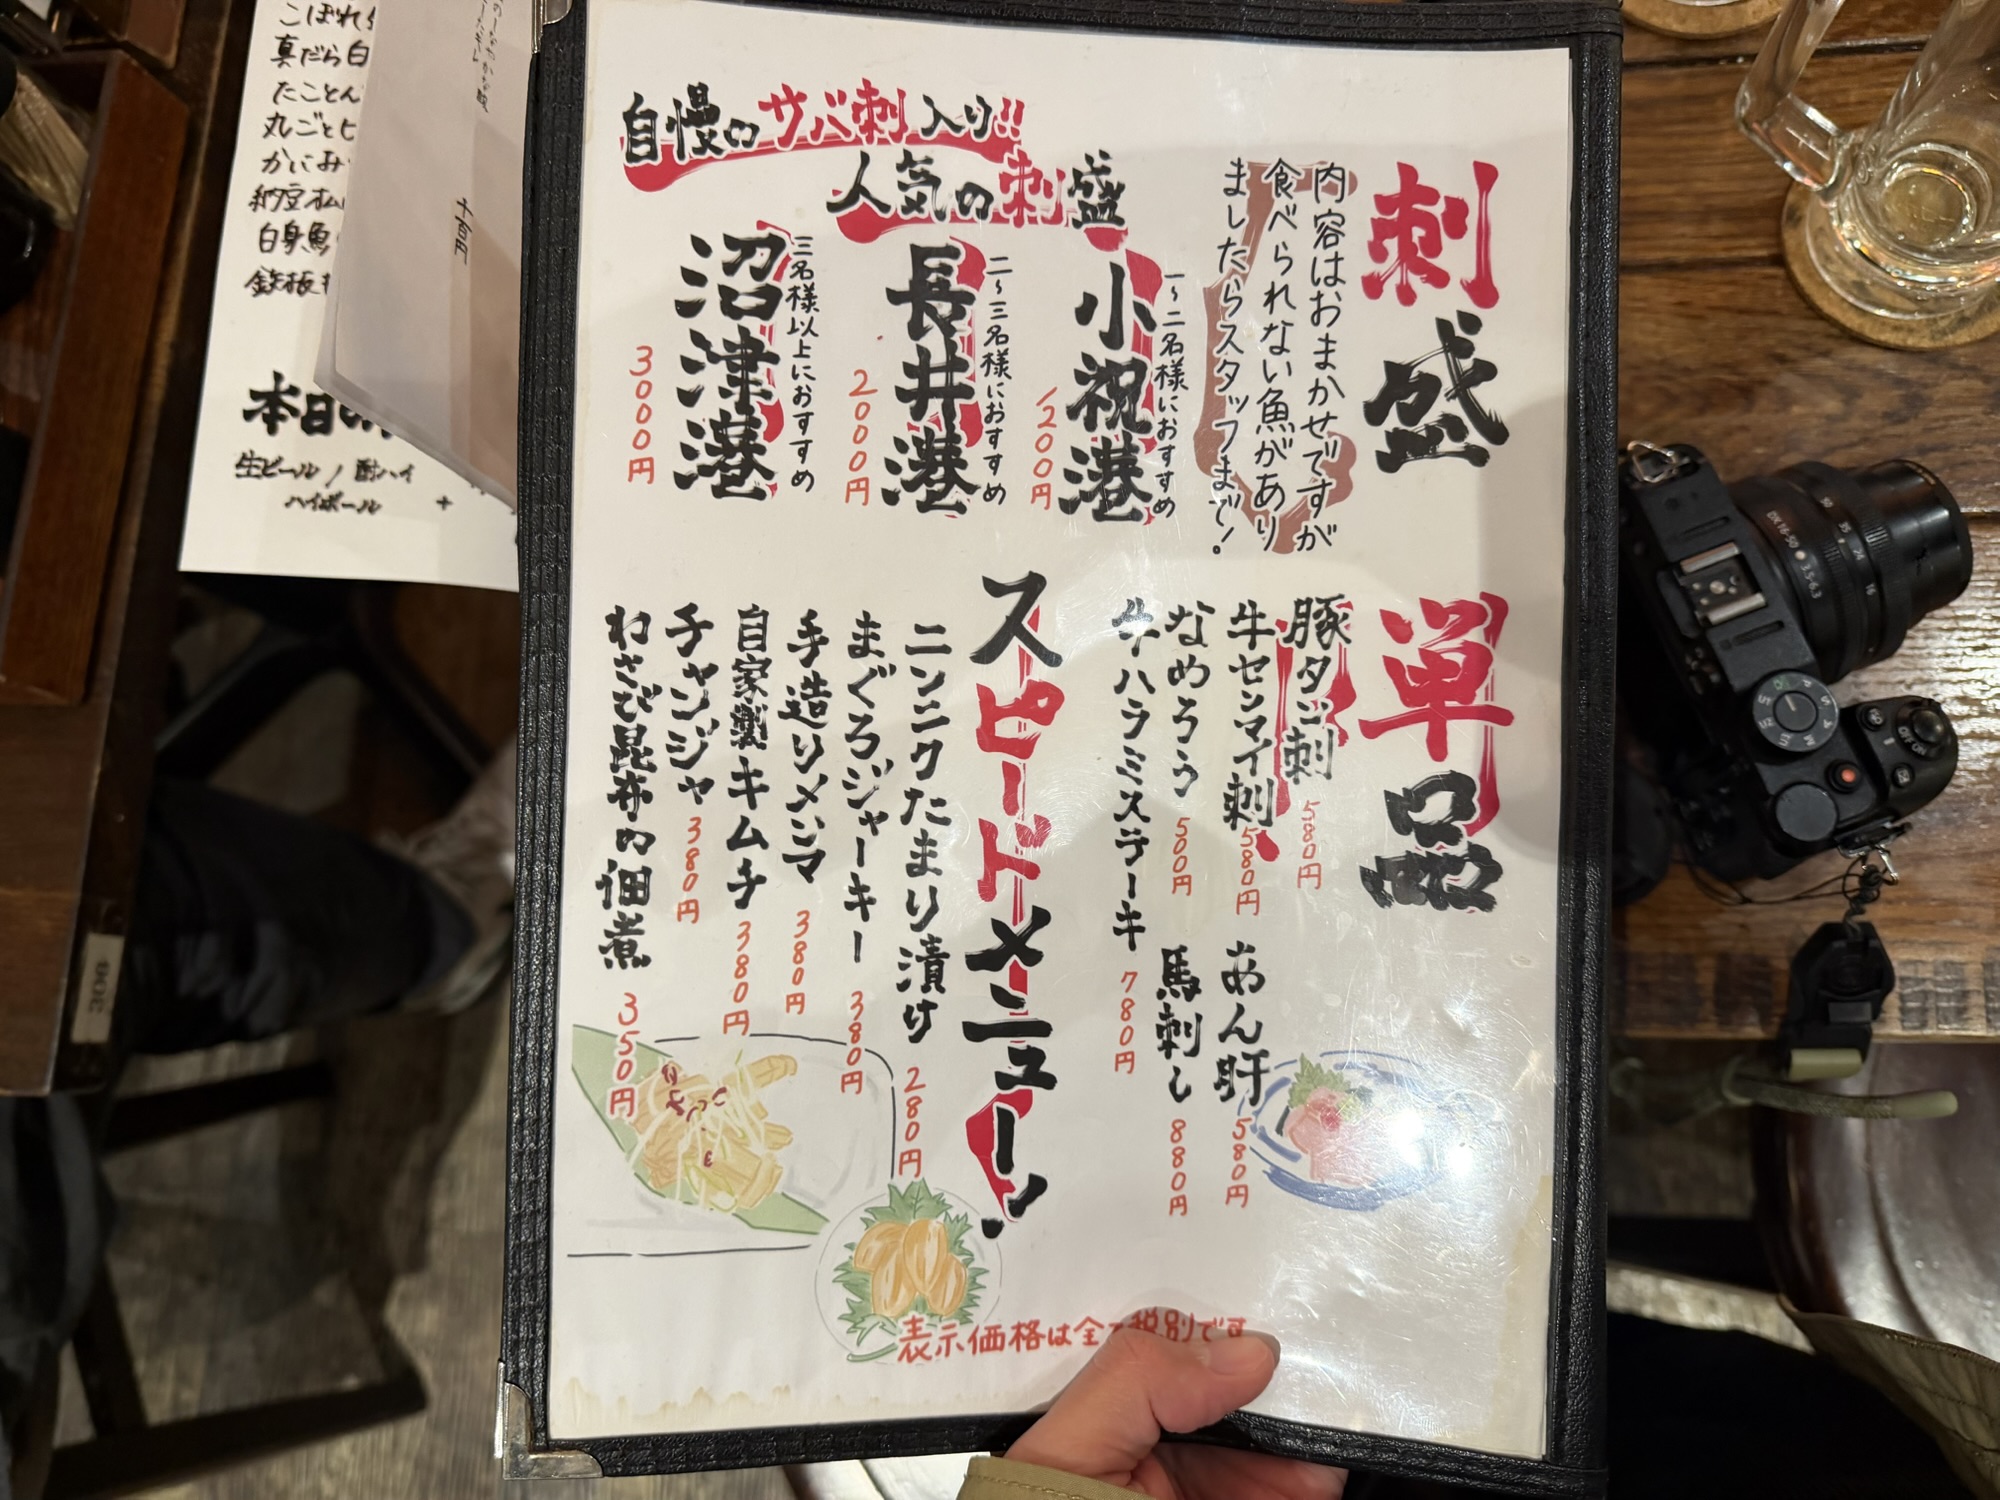 刺盛
内容はおまかせですが
食べられない魚があり
ましたらスタッフまで!
自慢のサバ刺入り!!
人気の刺盛
一~二名様におすすめ
小祝港
1200円
二~三名様におすすめ
長井港
2000円
三名様以上におすすめ
沼津港
3000円
単品
豚タン刺 580円
牛センマイ刺 580円
あん肝 580円
なめろう 500円
馬刺し 880円
牛ハラミステーキ 780円
スピードメニュー!
ニンニクたまり漬け 280円
まぐろジャーキー 380円
手造りメンマ 380円
自家製キムチ 380円
チャンジャ 380円
わさび昆布の佃煮 350円
表示価格は全て税別です
こぼれ
真だら白
たことん
丸ごと
かにみ
納豆
白身魚
鉄板
本日の
生ビール / 酎ハイ
ハイボール +
千百円
DX 16-50 3.5-6.3
50 35 24 16
OFF ON